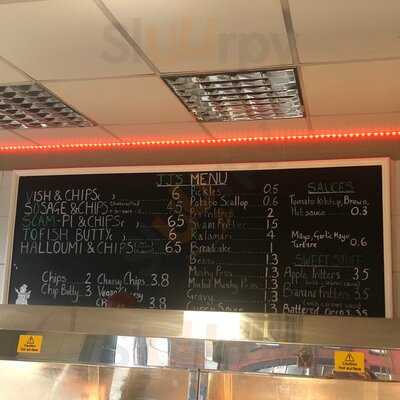 Sluurpy
JJ'S MENU
VISH & CHIPS 6
SOSAGE & CHIPS
SCAM-PI & CHIPS 6.5
TOFISH BUTTY
HALLOUMI & CHIPS 6.5
Chips 2
Chip Butty 3
Cheesy Chips 3.8
3.8
Pickles 0.5
Potato Scallop 0.6
2
1.5
Kalamari 4
Breadcake 1
Beans 1.3
Mushy Peas 1.3
Minted Mushy Peas 1.3
Gravy 1.3
Curry Sauce 1.3
SAUCES
Tomato Ketchup, Brown,
Hot sauce 0.3
Mayo, Garlic Mayo
Tartare 0.6
SWEET STUFF
Apple fritters 3.5
Banana fritters 3.5
Battered Oreo 3.5
Caution
Hot surface
Caution
Hot surface